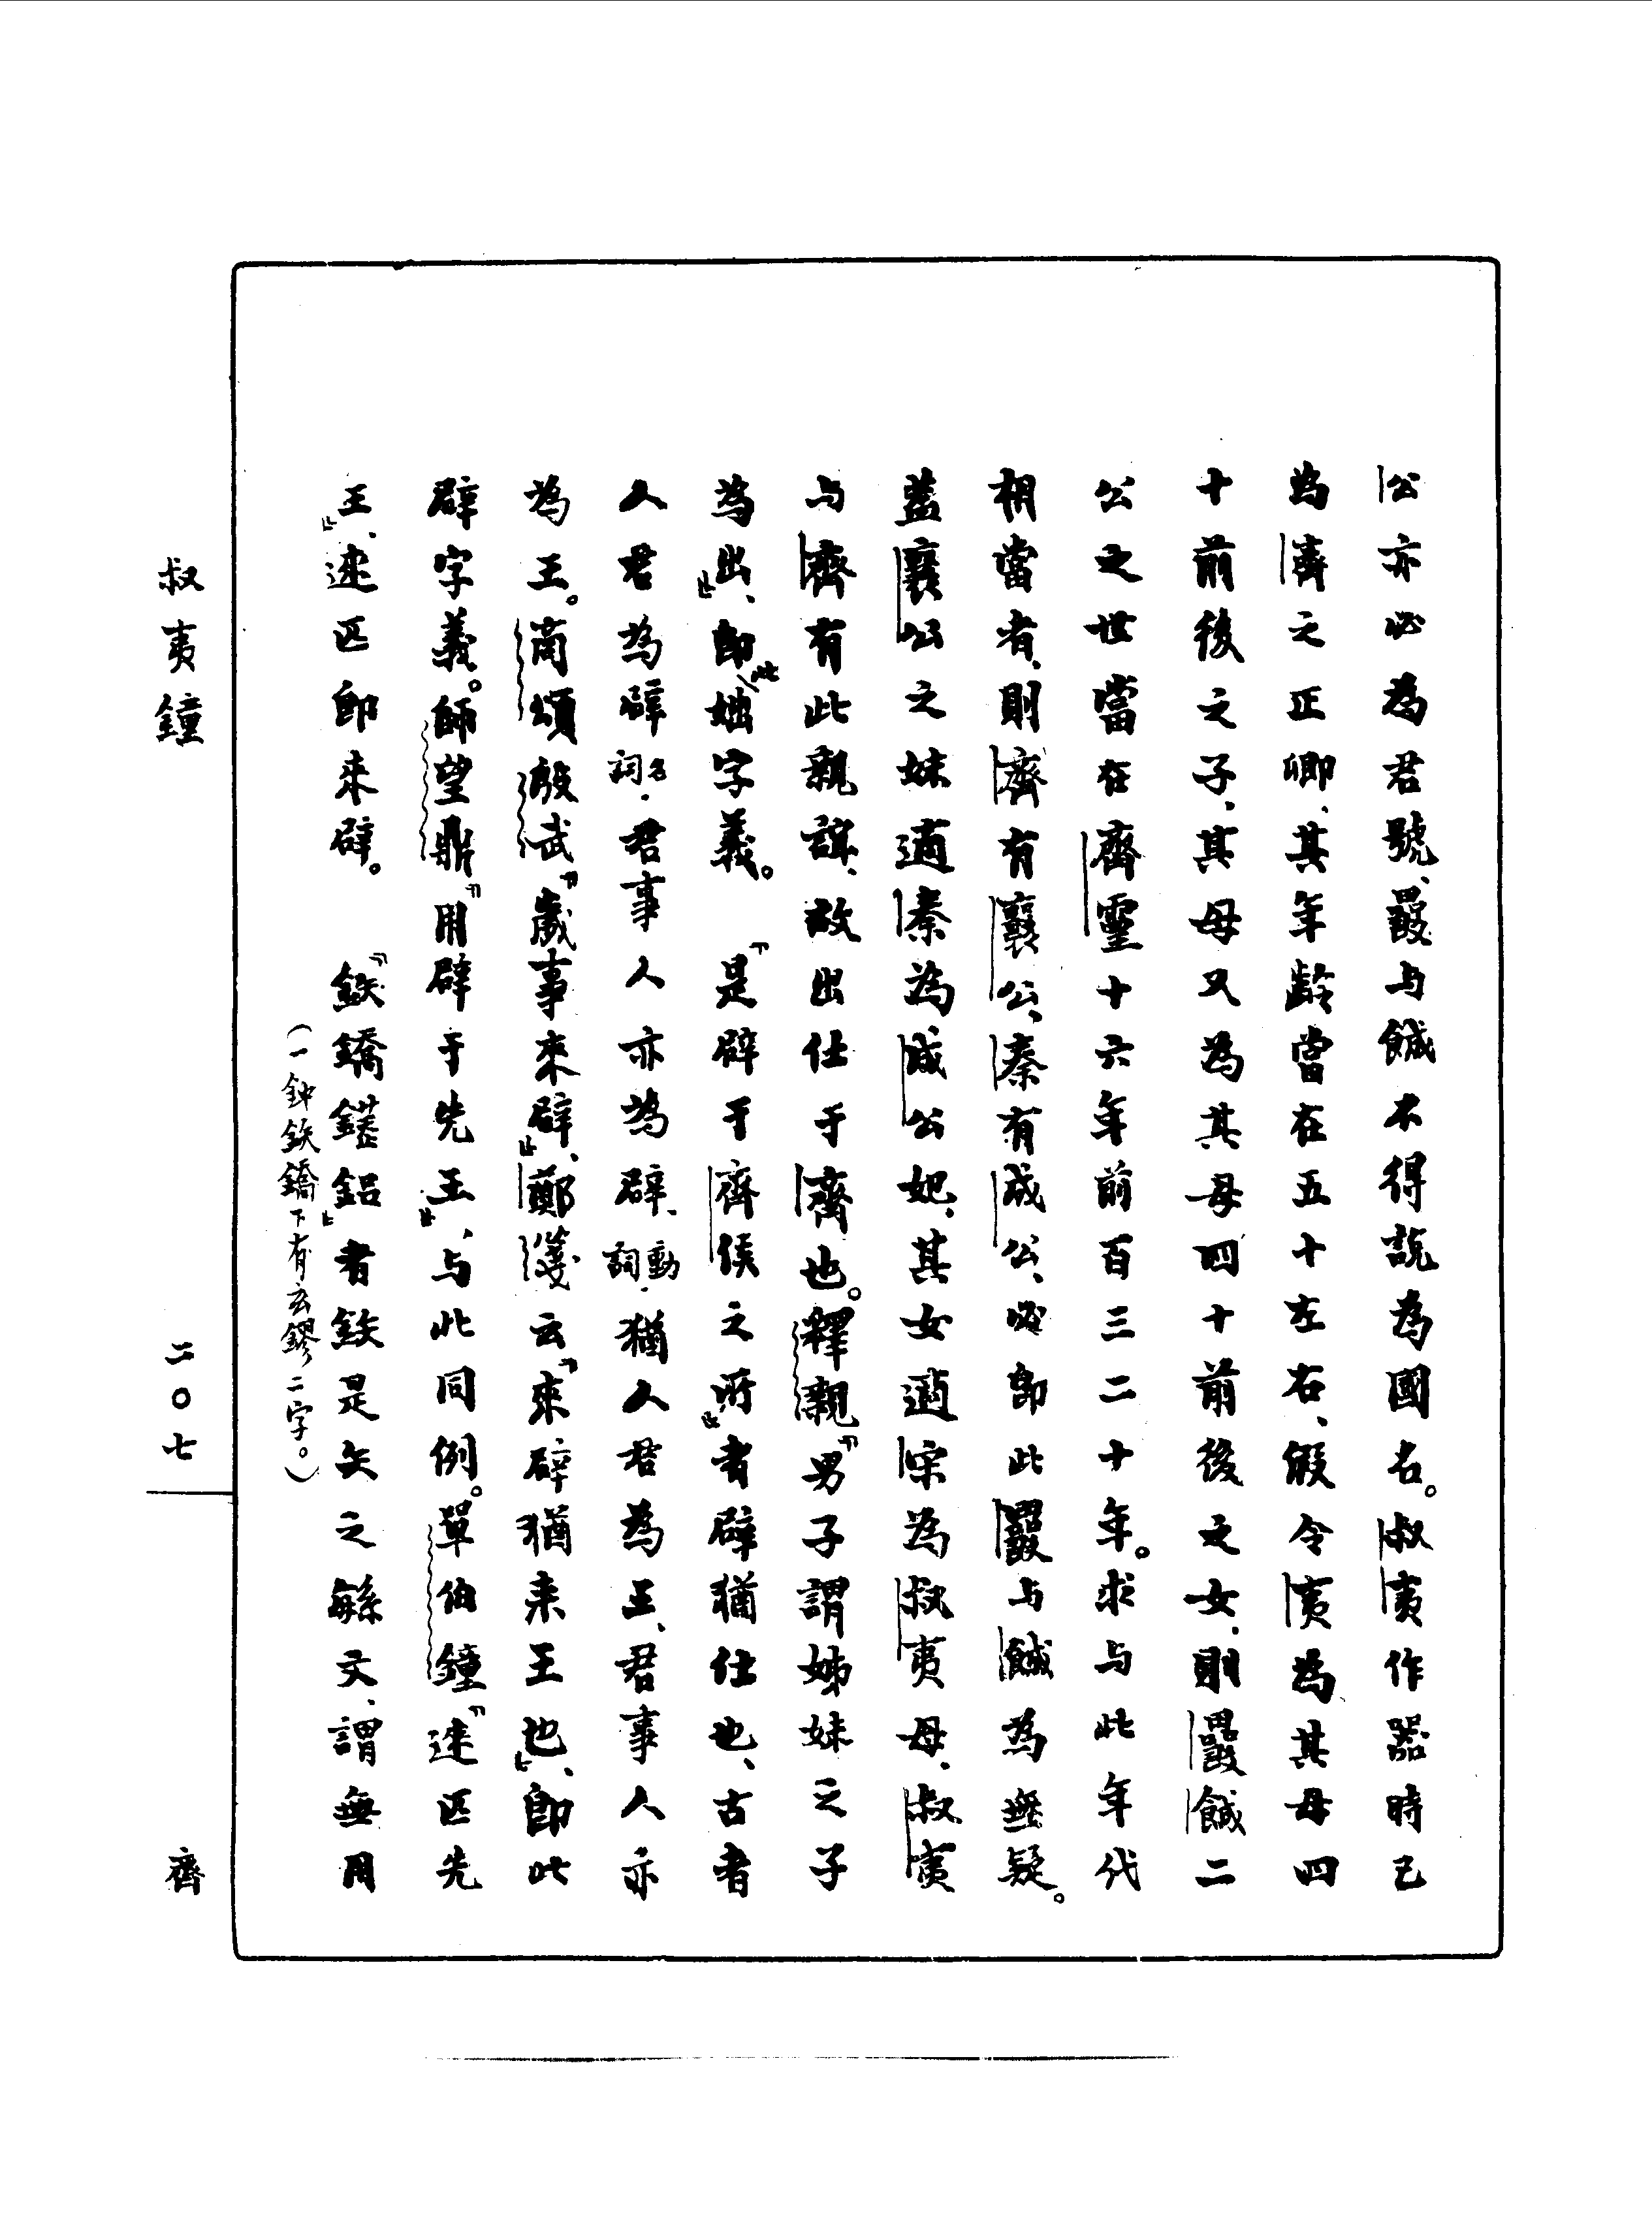 公亦必為君號、㽙与餓不得説為國名。叔夷作器時已
為齊之正卿、其年齡當在五十左右、假令夷為其母四
十前後之子、其母又為其母四十前後之女、則餓二
公之世當在齊靈十六年前百三二十年。求与此年代
相當者、則齊有襄公、秦有成公、必即此与餓為無疑。
蓋襄公之妹適秦為成公妃、其女適宋為叔夷母、叔夷
与齊有此親誼、故出仕于齊也。釋親『男子謂姊妹之子
為出』、即此㛗字義。　『是辟于齊侯之所』者辟猶仕也、古者
人君為辟名詞.君事人亦為辟、動詞.猶人君為王、君事人亦
為王。商頌殷武『歲事來辟』、鄭箋云『來辟猶来王也』、即此
辟字義。師望鼎『用辟于先王』、与此同例。單伯鐘『逨匹先
王』、逨匹即来辟。　『鈇鐈鋁』者鈇是矢之緐文、謂無用
（一鈡鈇鐈下有玄鏐二字。）
叔夷鐘
二〇七
齊